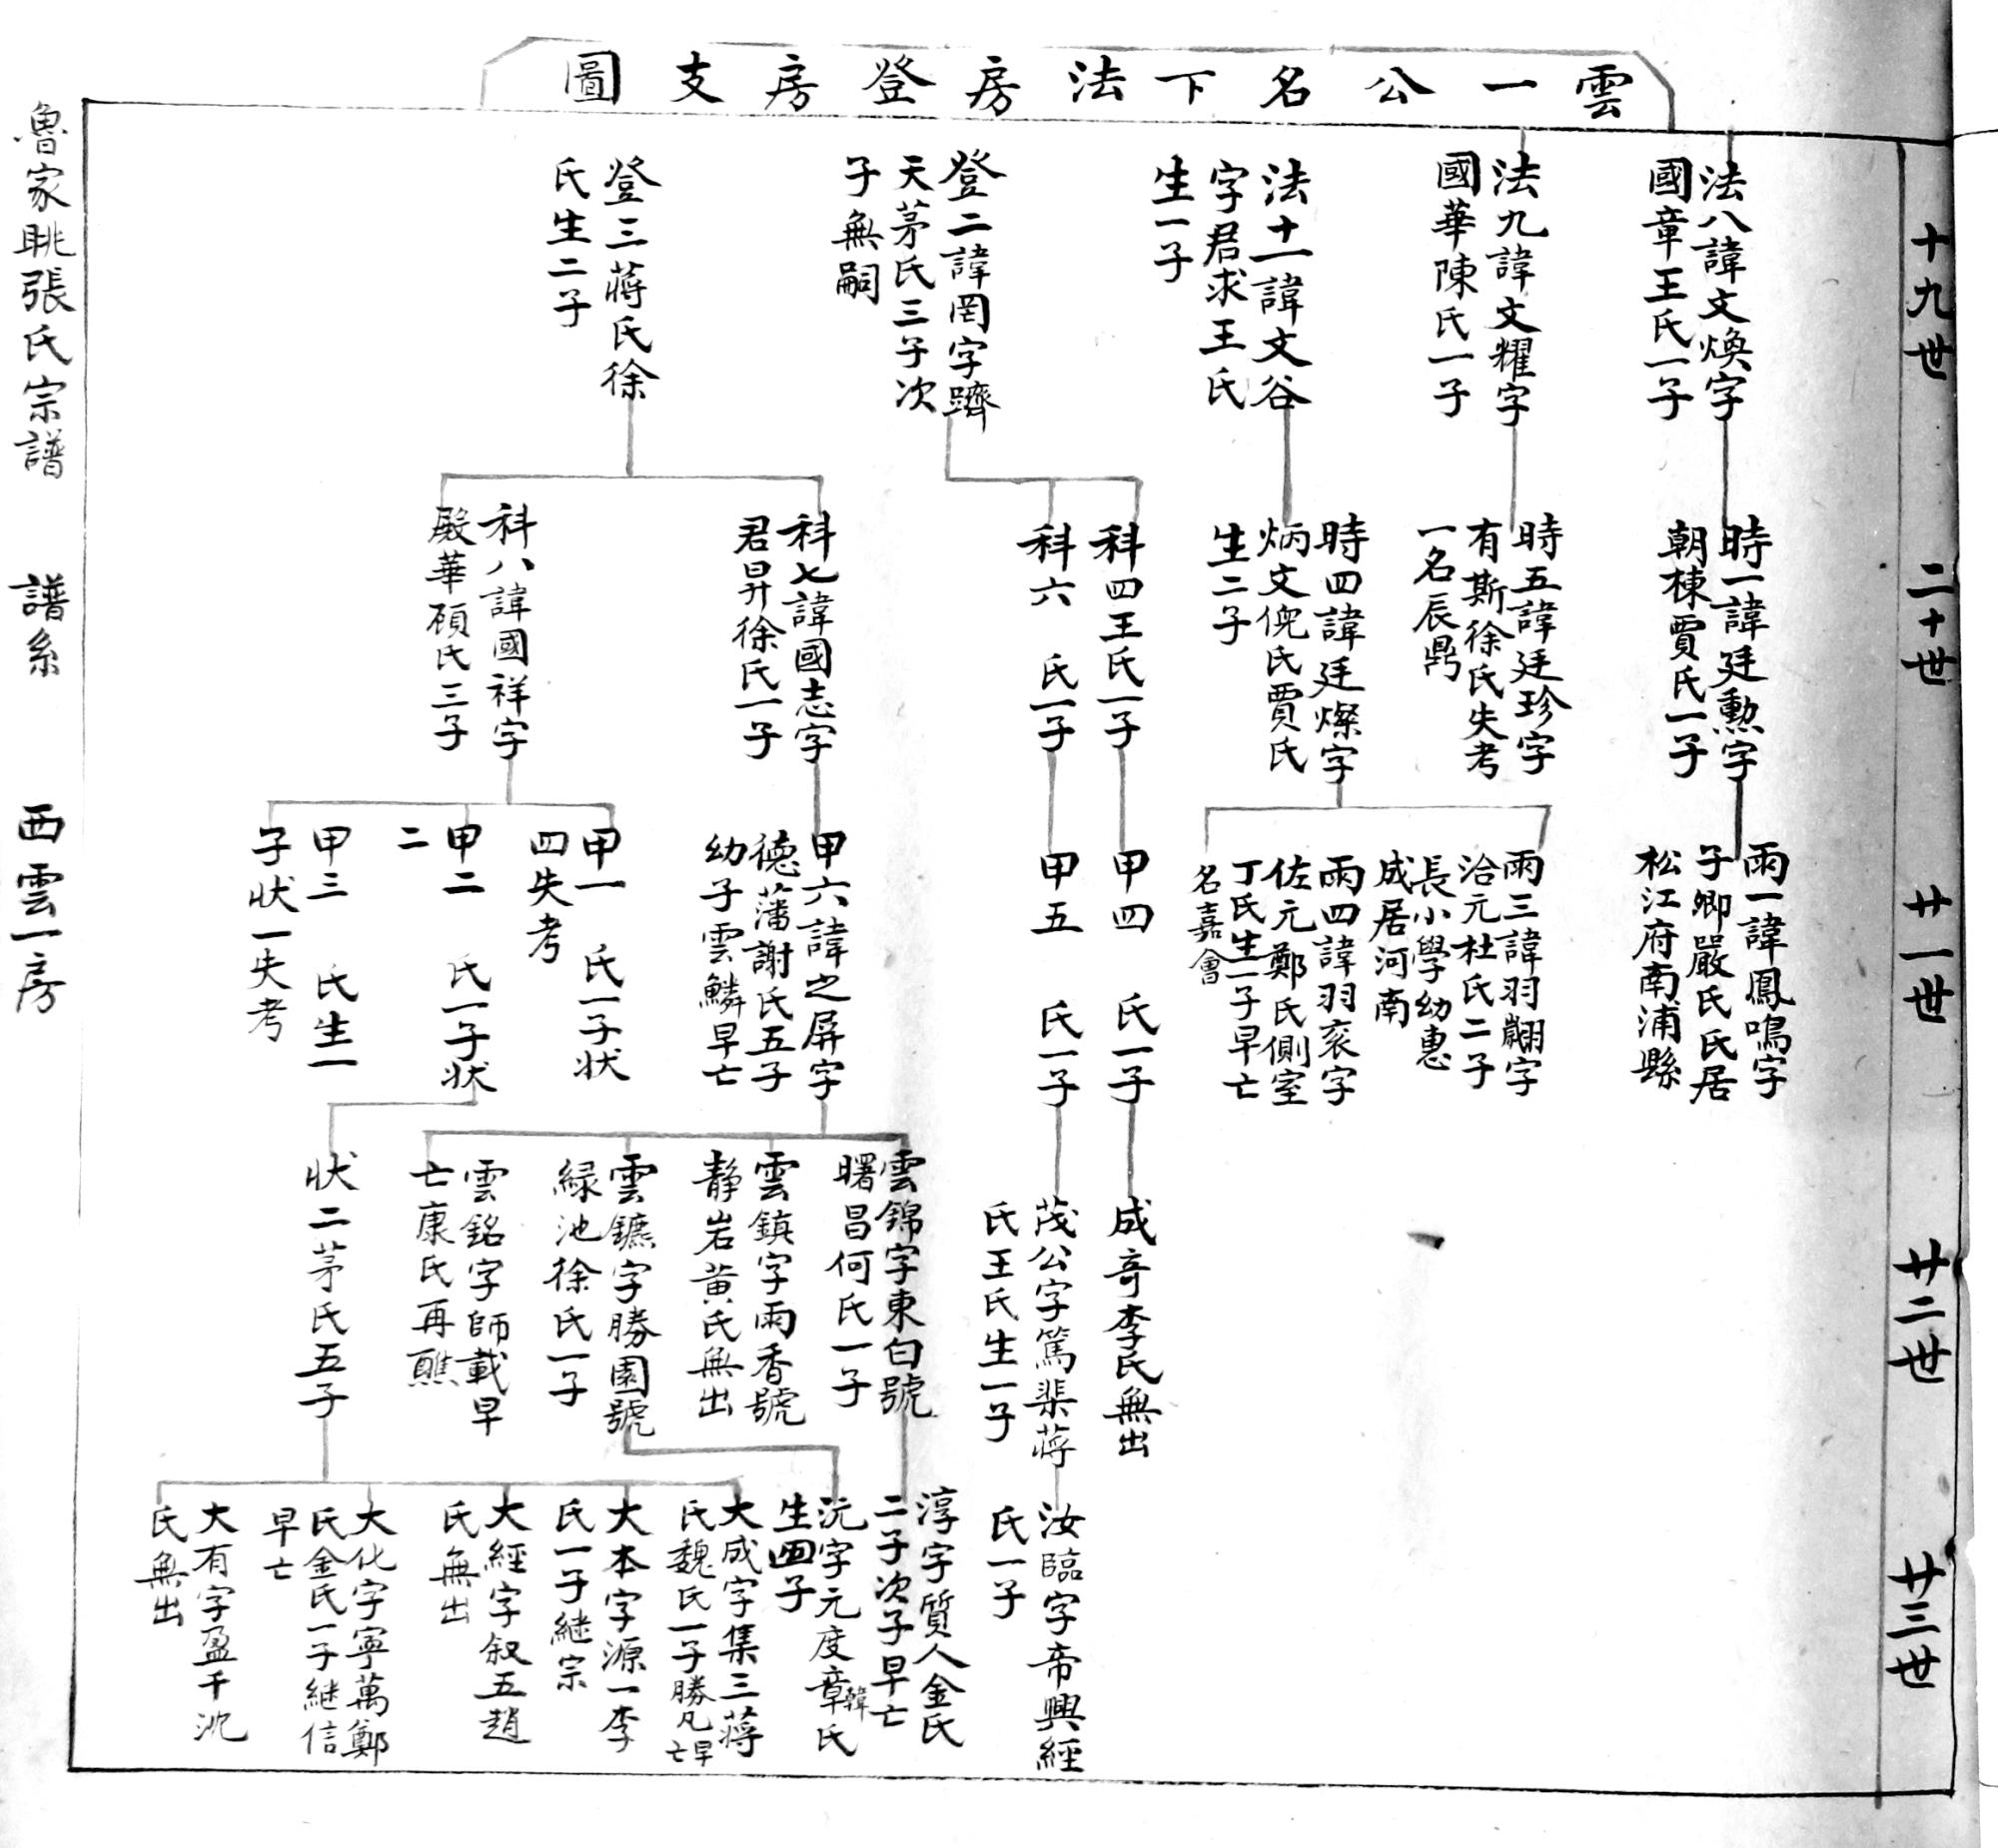 雲一公名下法房登房支圖
十九世
法八諱文煥字
國章王氏一子
法九諱文耀字
國華陳氏一子
法十一諱文谷
字君求王氏
生一子
登二諱罔字躋
天茅氏三子次
子無嗣
登三蔣氏徐
氏生二子
二十世
時一諱廷勲字
朝棟賈氏一子
時五諱廷珍字
有斯徐氏失考
一名辰鼎
時四諱廷燦字
炳文倪氏賈氏
生二子
科四王氏一子
科六 氏一子
科七諱國志字
君昇徐氏一子
科八諱國祥字
殿華顧氏三子
廿一世
雨一諱鳳鳴字
子卿嚴氏氏居
松江府南浦縣
雨三諱羽翩字
洽元杜氏二子
長小學幼惠
成居河南
雨四諱羽衮字
佐元鄭氏側室
丁氏生一子早亡
名嘉會
甲四 氏一子
甲五 氏一子
甲六諱之屏字
德藩謝氏五子
幼子雲鱗早亡
甲一 氏一子状
四失考
甲二 氏一子状
二
甲三 氏生一
子状一失考
廿二世
成奇李氏無出
茂公字篤棐蔣
氏王氏生一子
雲錦字東白號
曙昌何氏一子
雲鎮字雨香號
静岩黄氏無出
雲鑣字勝園號
緑池徐氏一子
雲銘字師載早
亡康氏再醮
状二茅氏五子
廿三世
汝臨字帝興經
氏一子
淳字質人金氏
二子次子早亡
沅字元度章韓氏
生四子
大成字集三蔣
氏魏氏一子勝凡早亡
大本字源一李
氏一子継宗
大經字叙五趙
氏無出
大化字寧萬鄭
氏金氏一子継信
早亡
大有字盈千沈
氏無出
魯家眺張氏宗譜 譜系 西雲一房